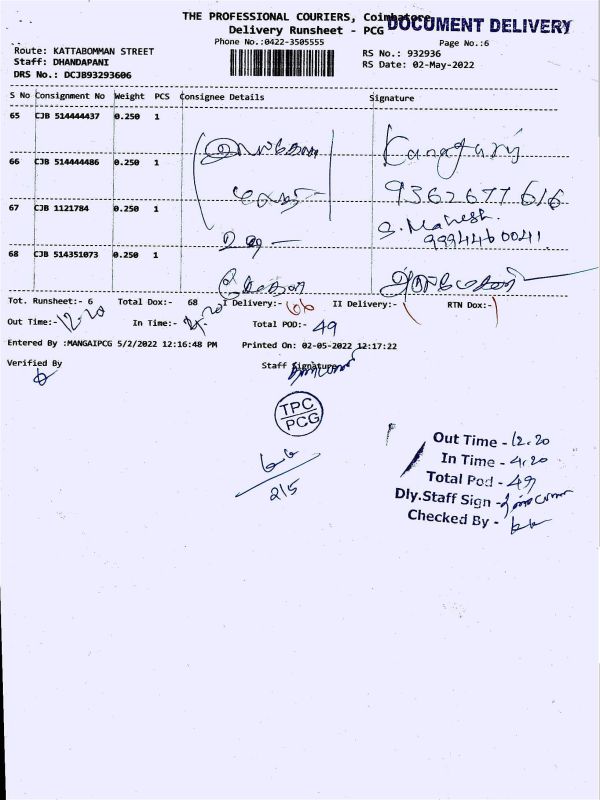 THE PROFESSIONAL COURIERS, Coimbatore
DOCUMENT DELIVERY
Delivery Runsheet - PCG
Phone No.:0422-3505555
Page No.:6
Route: KATTABOMMAN STREET
RS No.: 932936
Staff: DHANDAPANI
RS Date: 02-May-2022
DRS No.: DCJB93293606
S No Consignment No Weight PCS Consignee Details Signature
65 CJB 514444437 0.250 1
66 CJB 514444486 0.250 1
9362677616
67 CJB 1121784 0.250 1
S. Mahesh.
9994460041.
68 CJB 514351073 0.250 1
Tot. Runsheet:- 6 Total Dox:- 68 I Delivery:- 66 II Delivery:- RTN Dox:-
Out Time:- 12.20 In Time:- 4.20 Total POD:- 49
Entered By :MANGAIPCG 5/2/2022 12:16:48 PM Printed On: 02-05-2022 12:17:22
Verified By Staff Signature
TPC
PCG
2/5
Out Time - 12.20
In Time - 4.20
Total Pod - 49
Dly.Staff Sign -
Checked By -